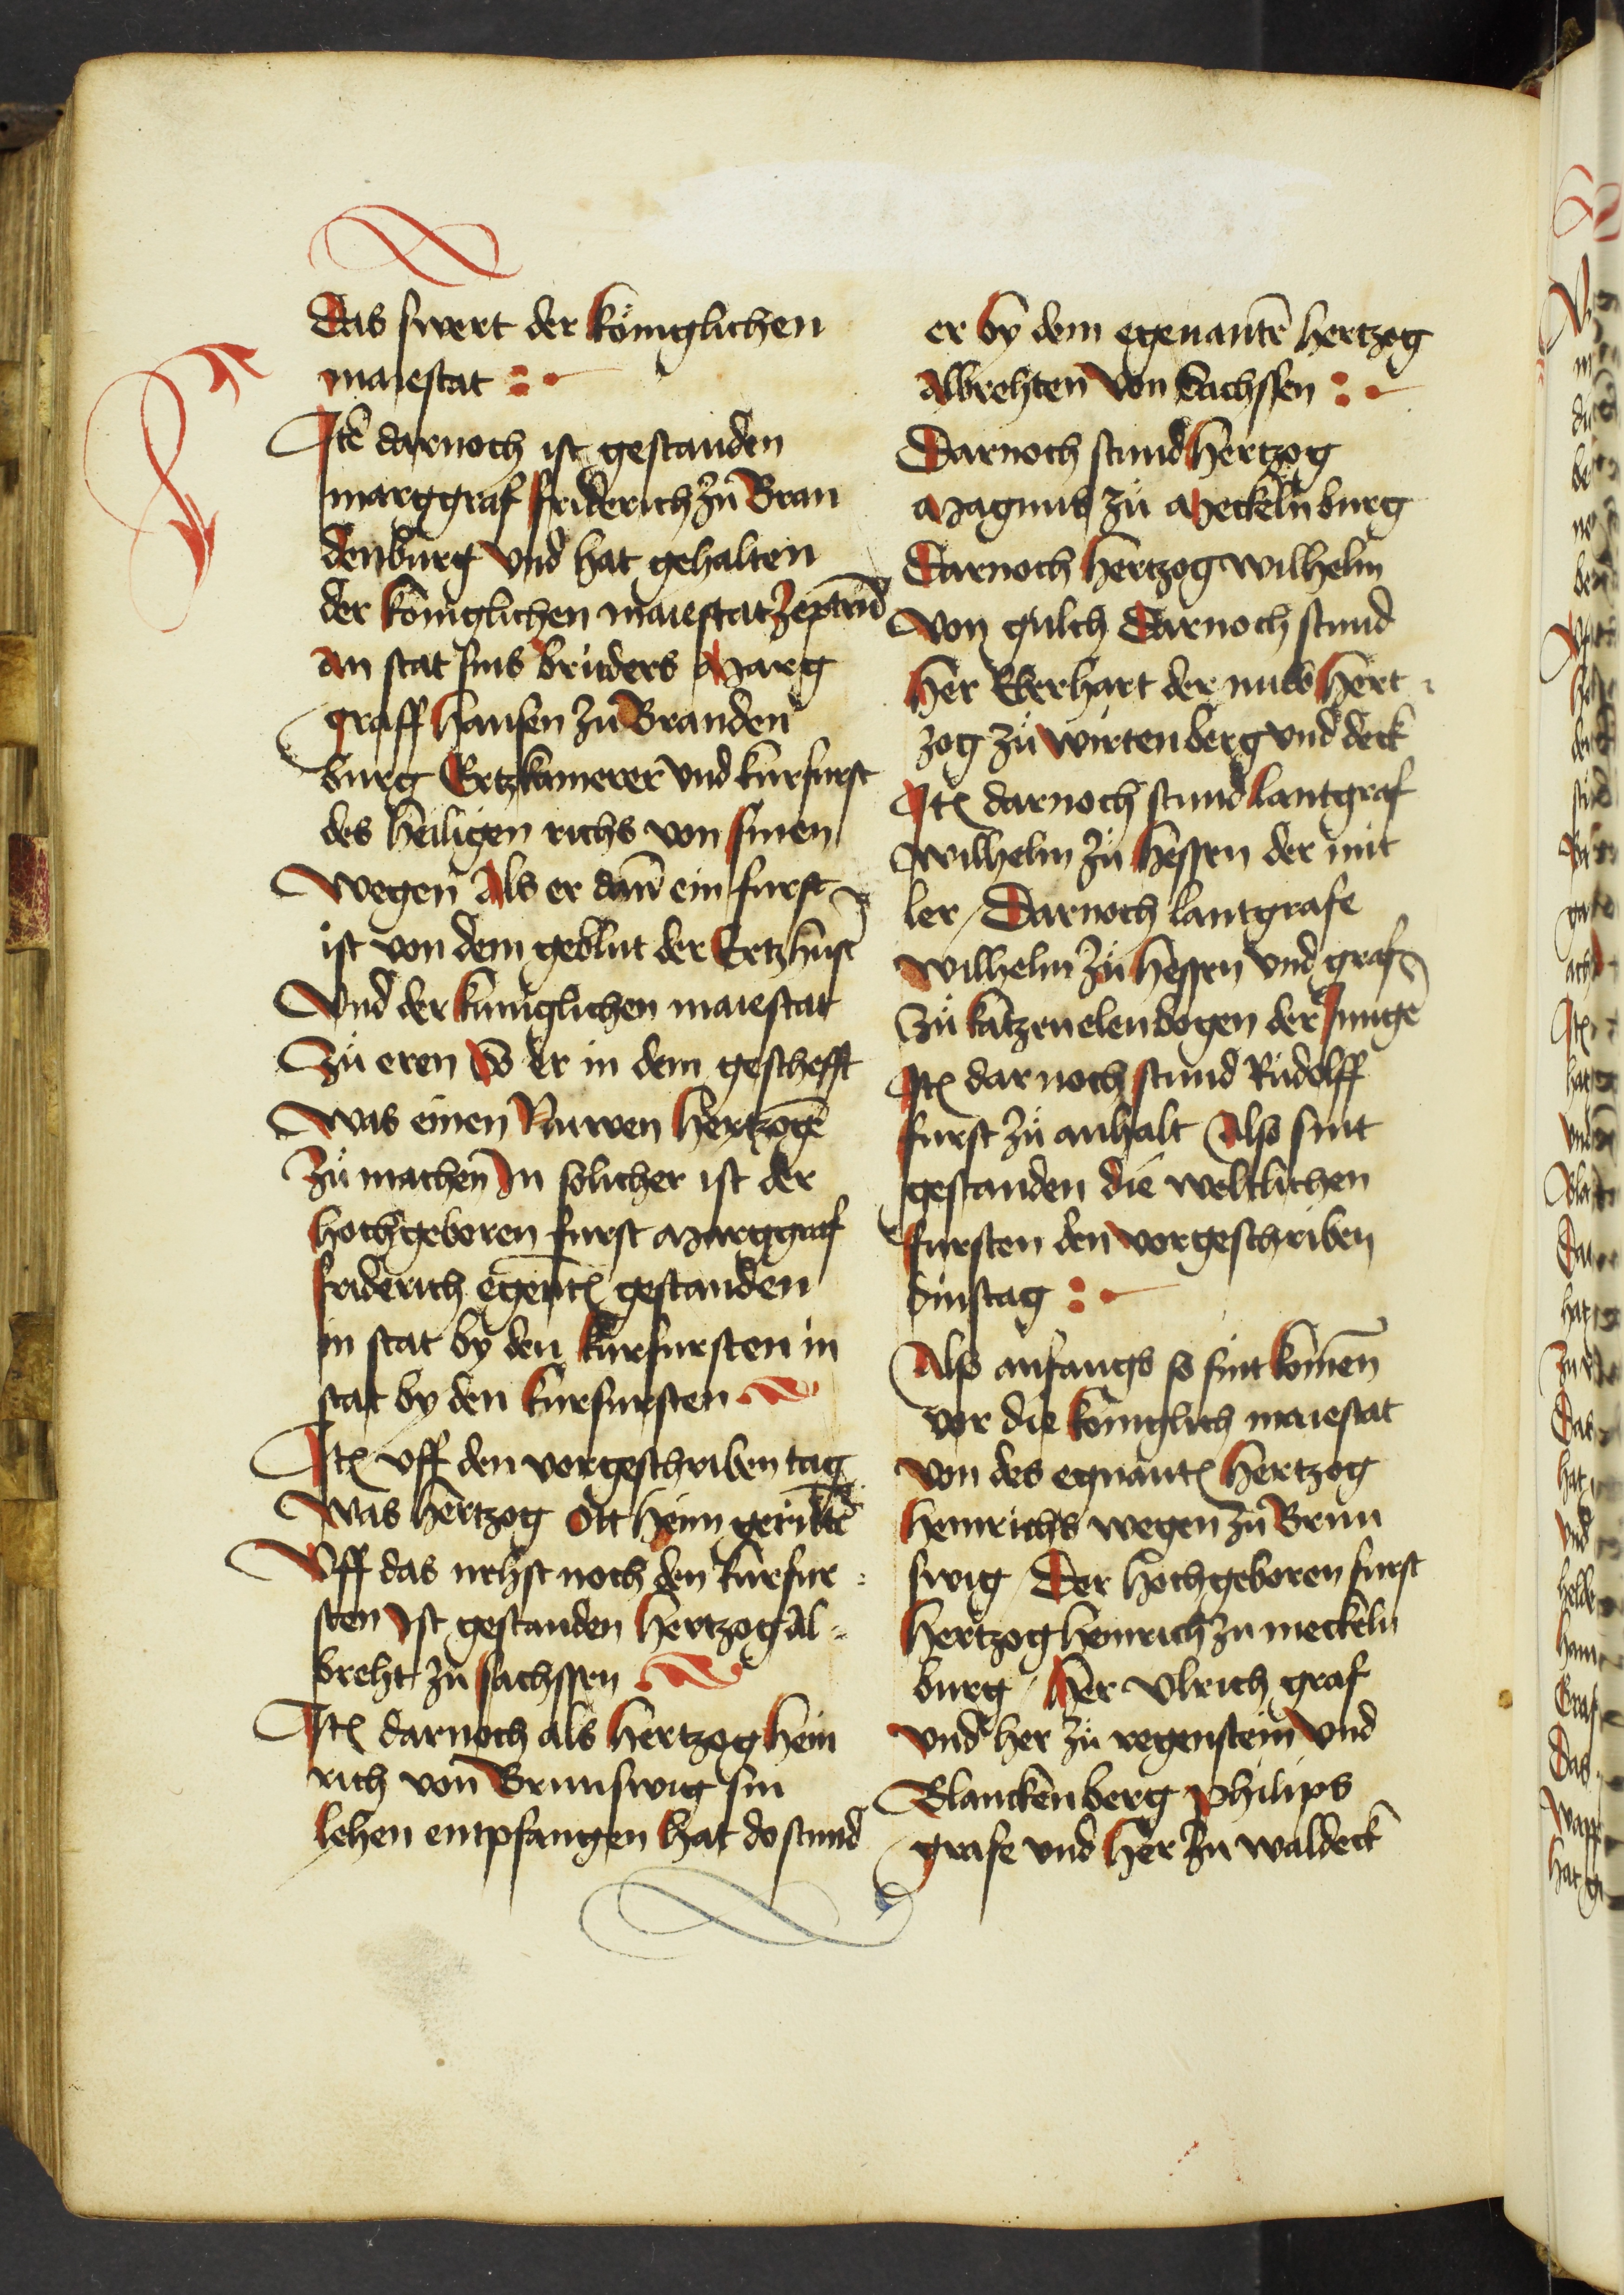 Das swert der königlichen
maiestat :
Itē darnoch ist gestanden
marggraf friderich zů Bran
denburg vnd hat gehalten
der königlichen maiestat zeptrū
an stat sins brůders Marg
graff hansen zů Branden
burg Ertzkamerer vnd kurfurst
des heiligen richs von sinen
wegen Als er dañ ein furst
ist von dem geblut der Ertz hust
Vnd der kůniglichen maiestat
Zů eren So er in dem geschefft
was einen Nuwen hertzogē
zů machen In solicher ist der
hochgeboren furst Marggraf
friderich egen̄t gestanden
in stat by den kurfursten in
stat by den kurfursten
Itē vff den vorgeschriben tag
was hertzog Ott heim gerückt
Vff das nehst noch den kurfur
sten Ist gestanden hertzog Al
breht zů sachssen
Itē darnoch als hertzog hein
rich von Brunswig sin
lehen entpfangen hat do stund
er by dem egenantē hertzog
Albrehten von Sachssen :
Darnoch stund hertzog
Magnus zů Meckeln burg
Darnoch hertzog wilhelm
von gulch Darnoch stund
her Eberhart der nuw hert
zog zů wirtenberg vnd deck
Itē darnoch stund lantgraf
wilhelm zů hessen der mit
ler / Darnoch lantgrafe
wilhelm zů hessen vnd graf
zů katzenelenbogen der Jungē
Itē dar noch stund Růdolff
furst zů anhalt Also sint
gestanden die weltlichen
fursten den vorgeschriben
dinstag :
Also anfangs so sint komen
vor die königlich maiestat
von des egnantē hertzog
heinrichs wegen zů Brun
swig / Der hochgeboren furst
hertzog heinrich zu meckeln
burg / her vlrich graf
vnd her zů regenstein vnd
Blanckenberg philips
grafe vnd her zu waldeck